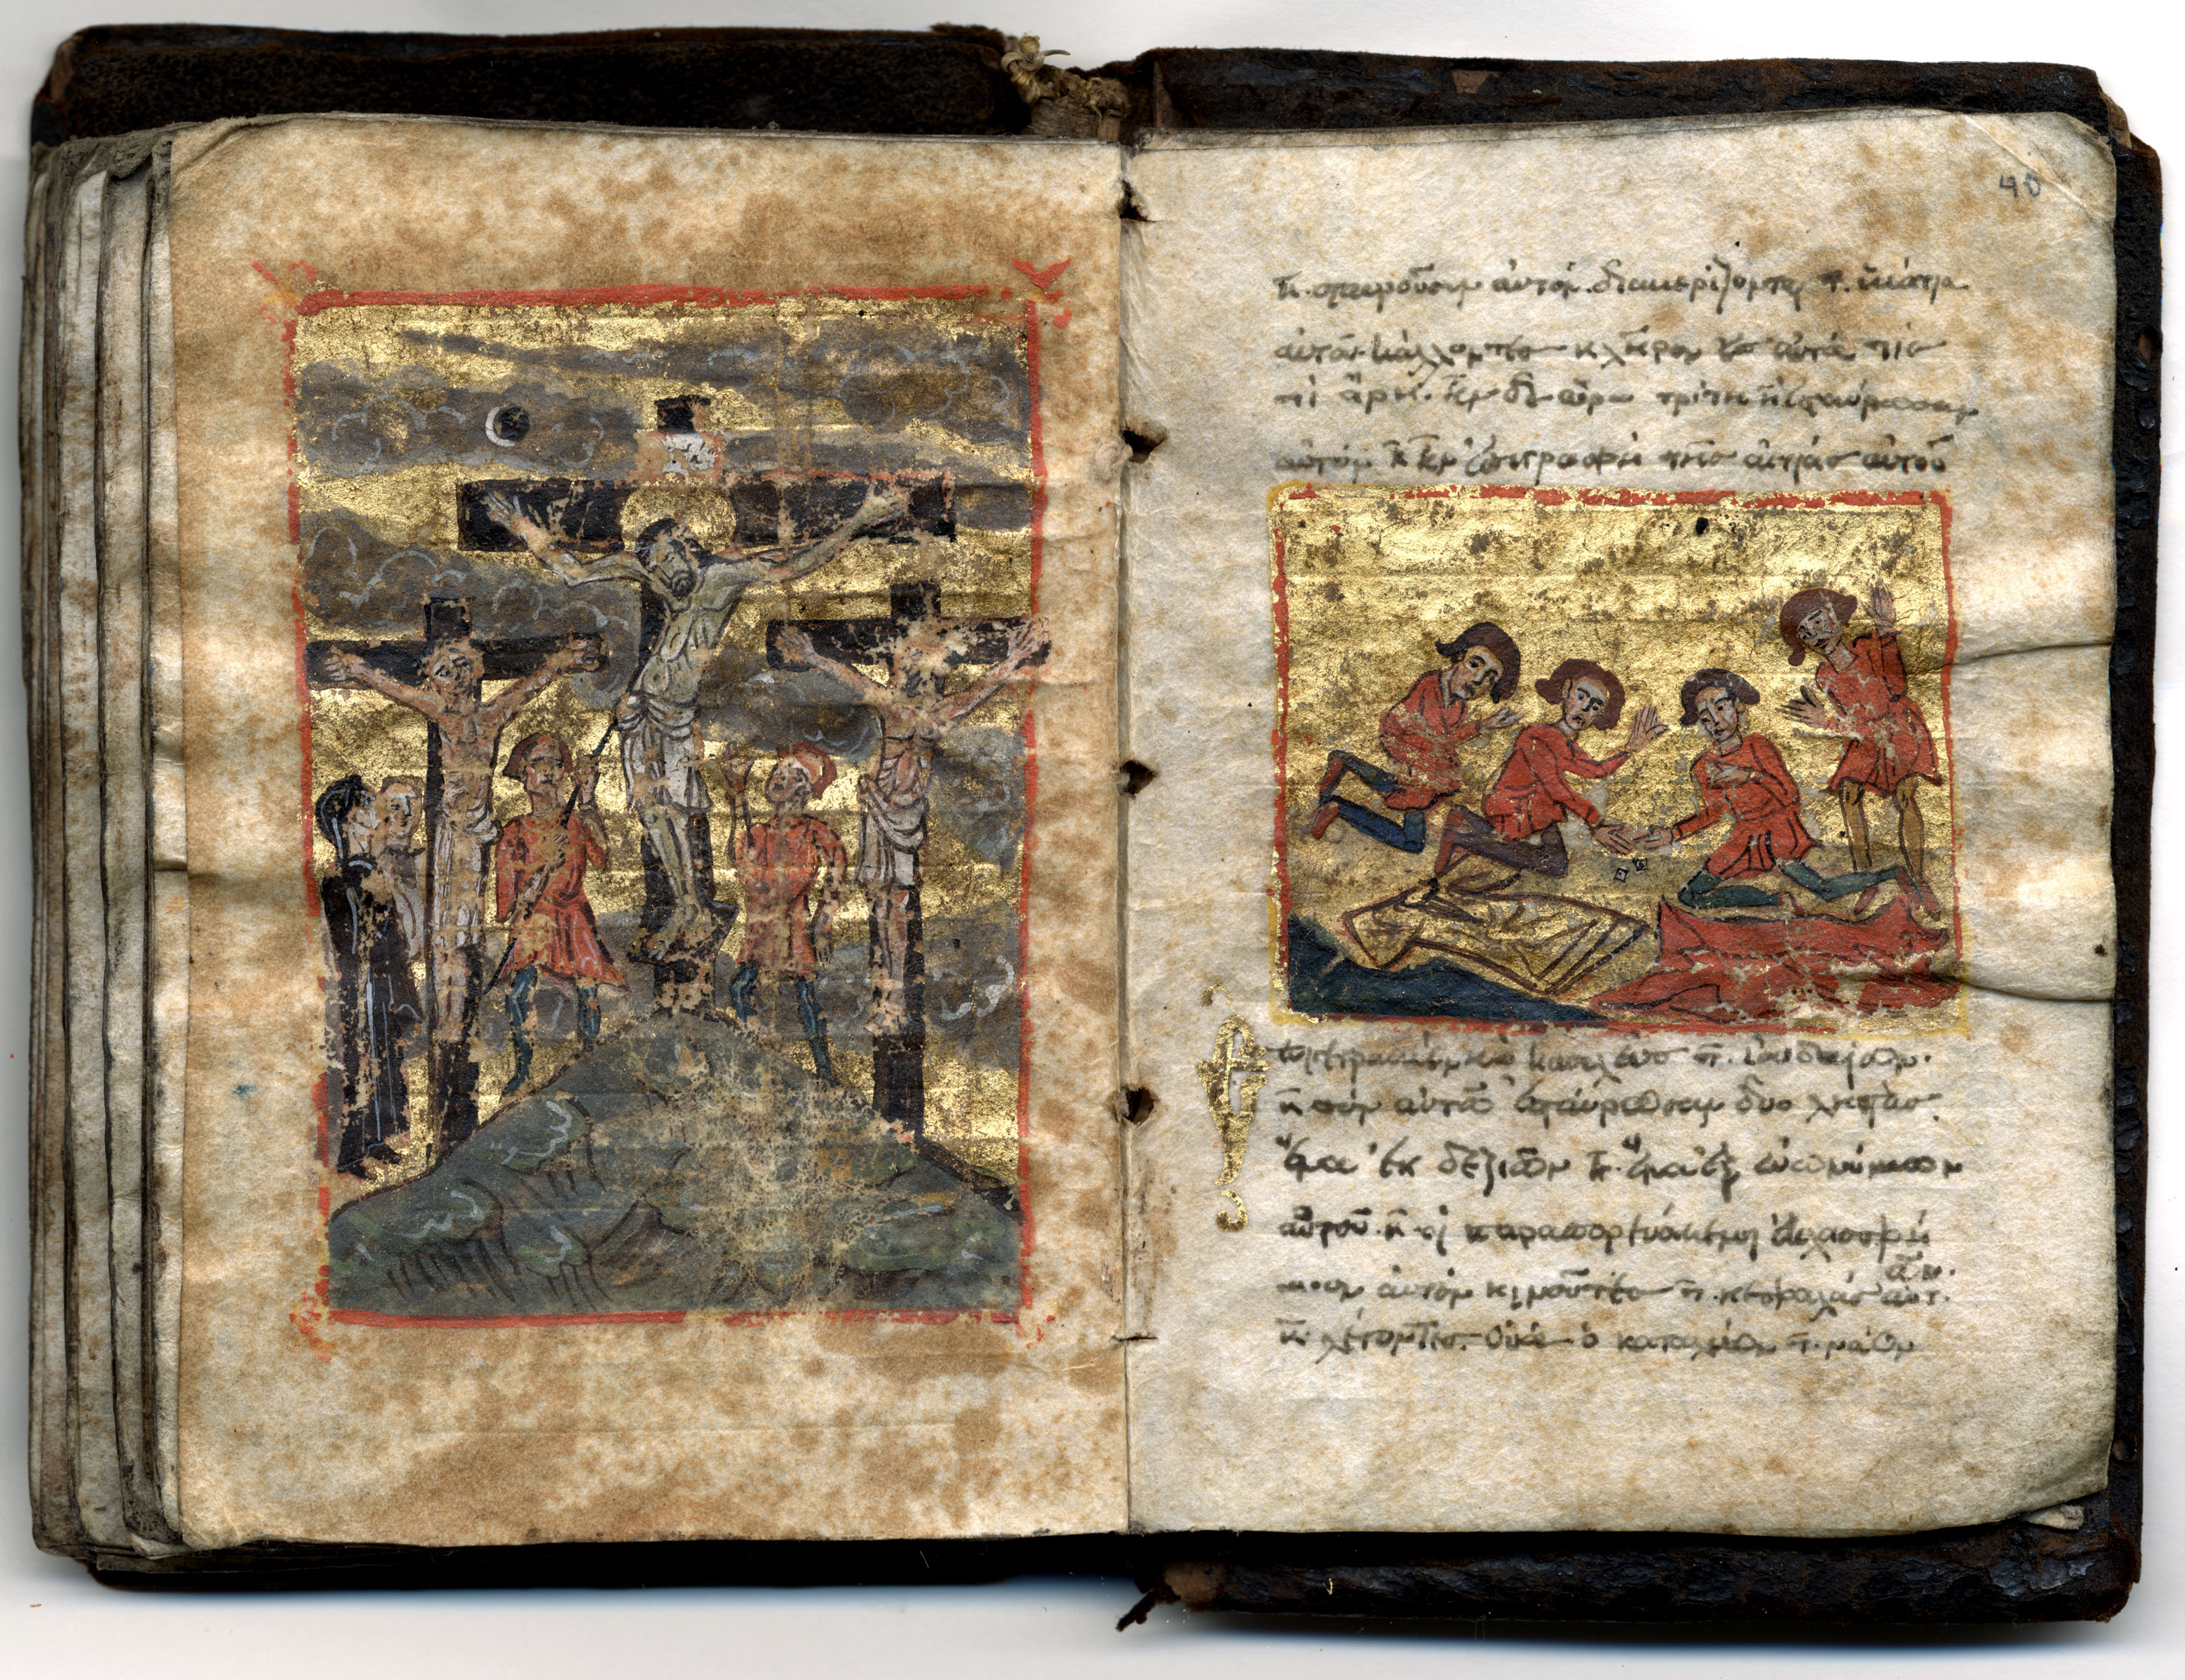 40
κ. σταυροῦσιν αὐτόν. διαμερίζονται τ. ἱμάτια
αὐτοῦ βάλλοντες κλῆρον ἐπ αὐτὰ τίς
τί ἄρῃ. ἦν δὲ ὥρα τρίτη κ ἐσταύρωσαν
αὐτόν κ ἦν ἐπιγραφὴ τῆς αἰτίας αὐτοῦ
βασιλεὺς τ. ἰουδαίων.
κ σὺν αὐτῷ ἐσταύρωσαν δύο ληστάς.
ἕνα ἐκ δεξιῶν κ. ἕνα ἐξ εὐωνύμων
αὐτοῦ. κ οἱ παραπορευόμενοι ἐβλασφή
μουν αὐτόν κινοῦντες τ. κεφαλὰς αὐτ.
κ. λέγοντες. οὐὰ ὁ καταλύων τ. ναὸν